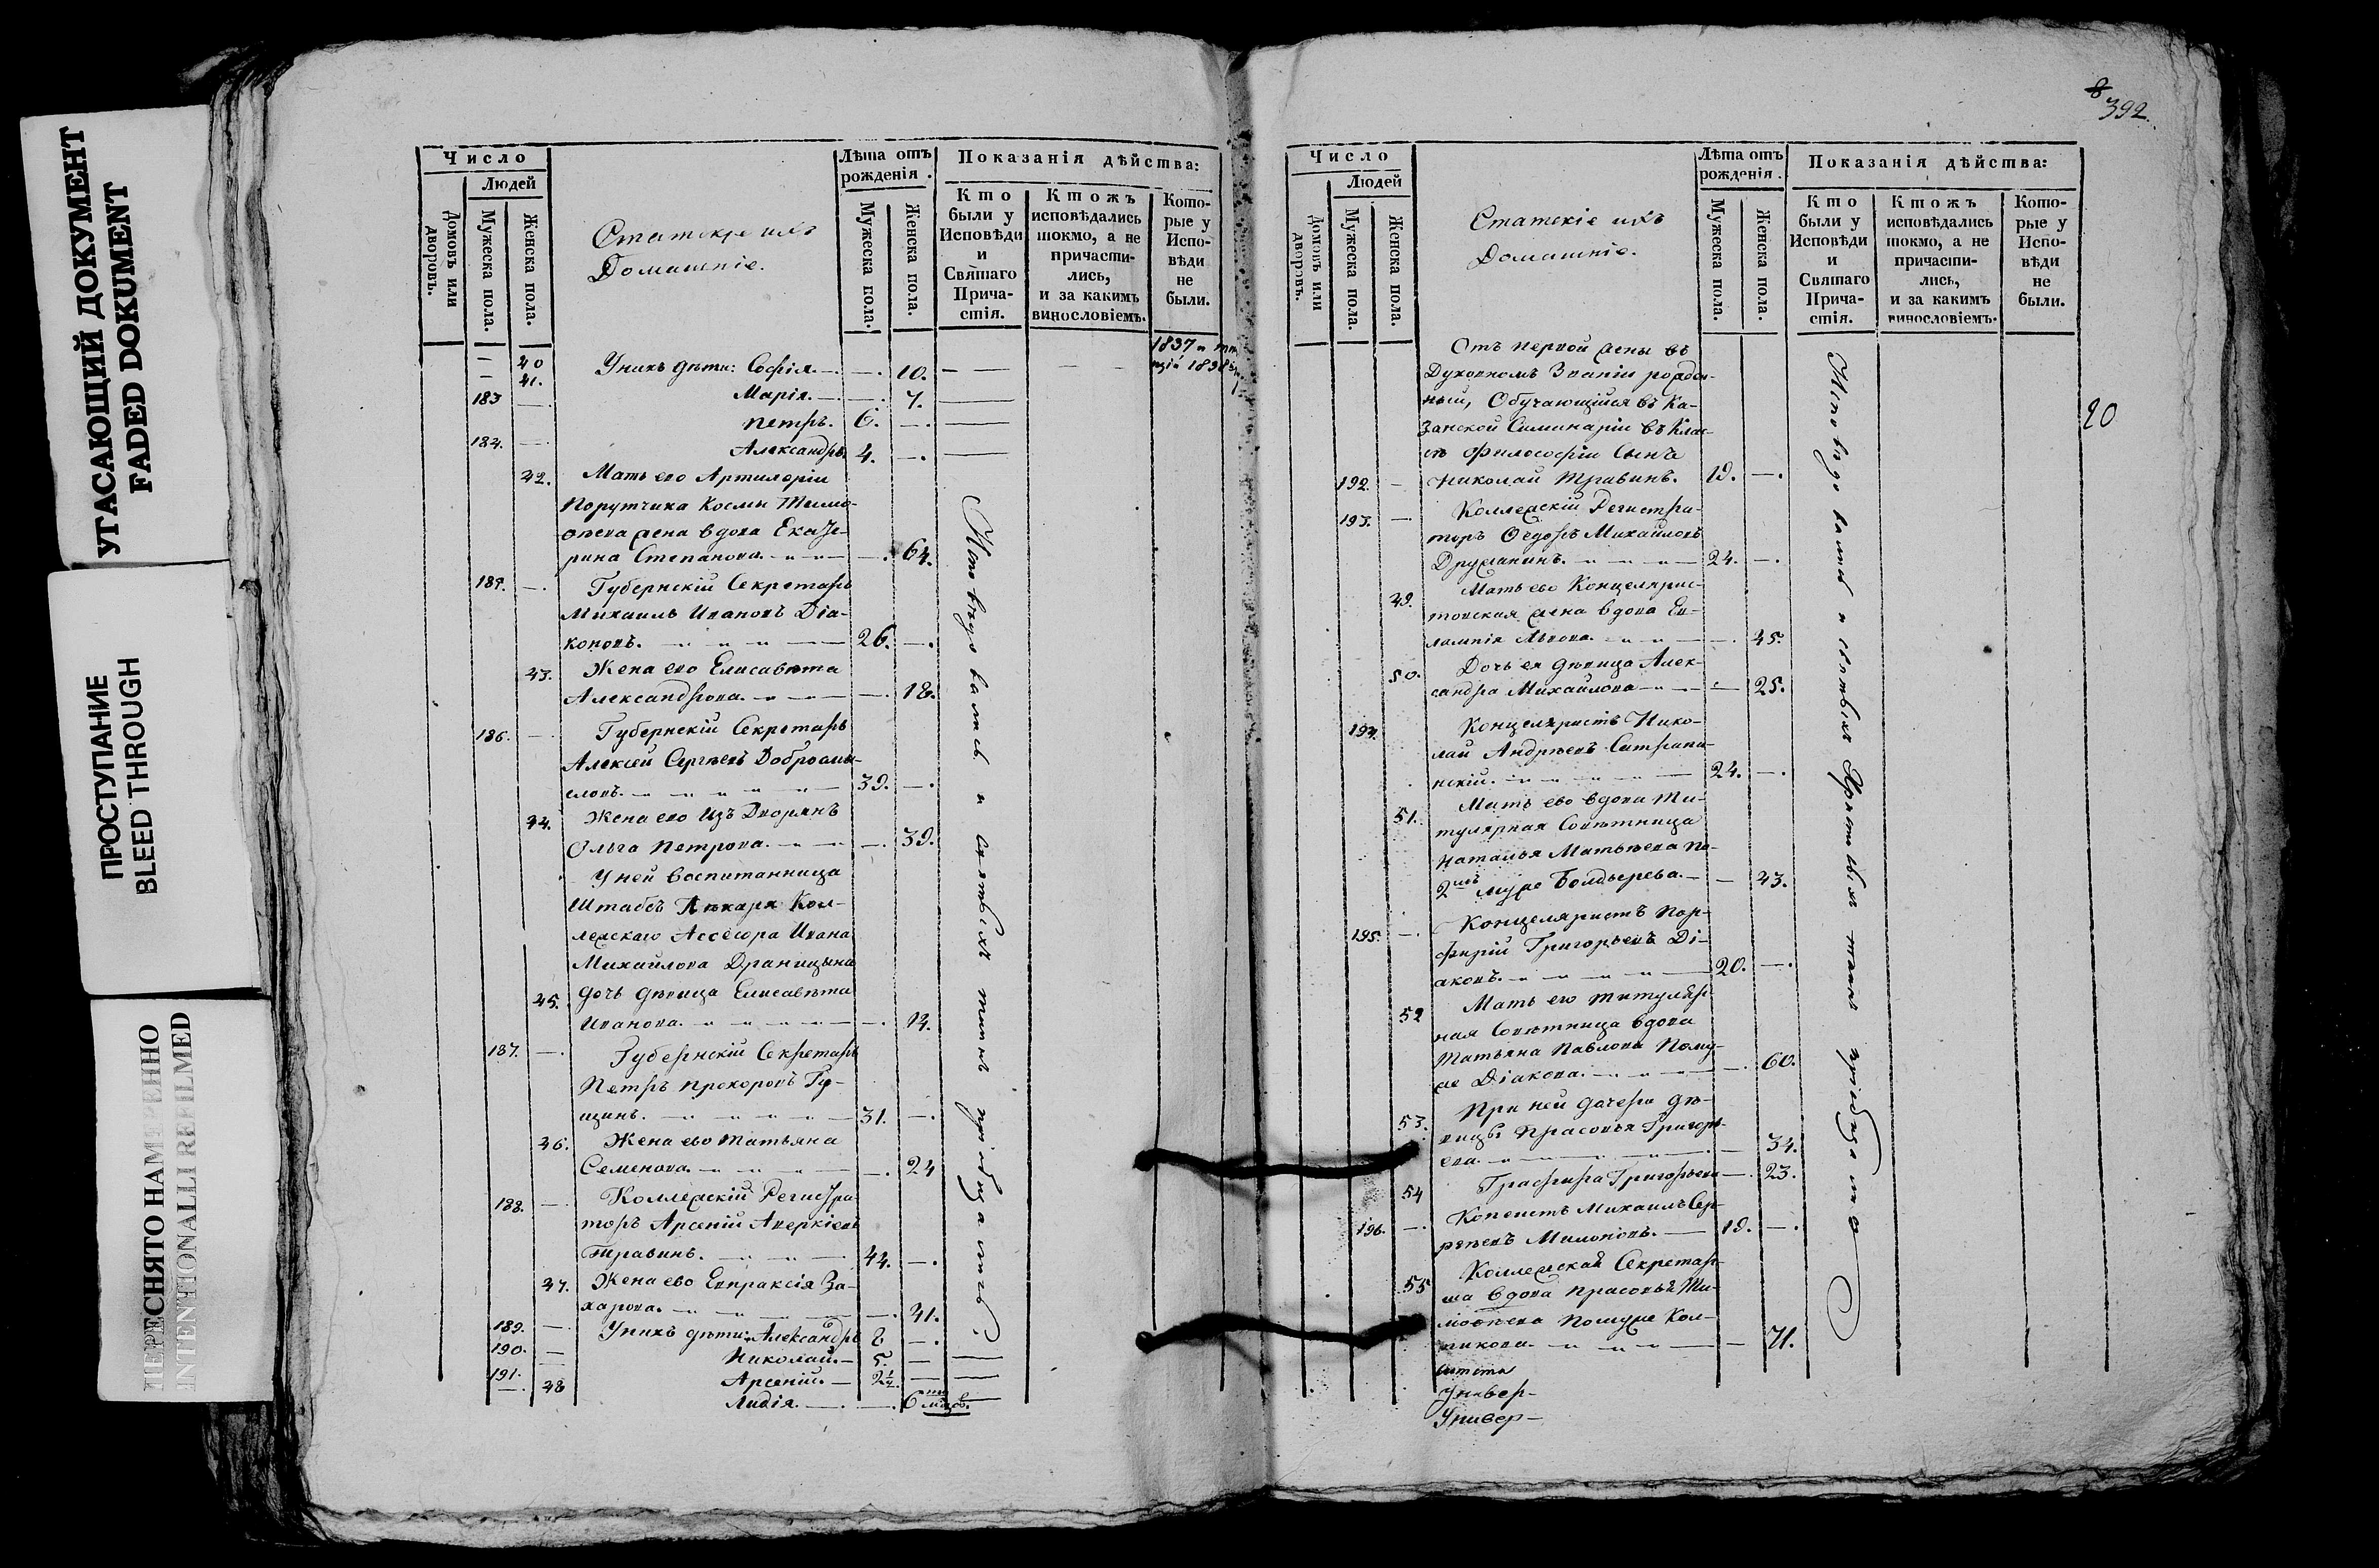 УГАСАЮЩИЙ ДОКУМЕНТ
FADED DOKUMENT
ПРОСТУПАНИЕ
BLEED THROUGH
ПЕРЕСНЯТО НАМЕРЕННО
INTENTIONALLI REFILMED
Число
Людей
Домовъ или дворовъ.
Мужеска пола.
Женска пола.
Статскіе ихъ
Домашніе.
Лѣта отъ
рожденія.
Мужеска пола.
Женска пола.
Показанія дѣйства:
Кто были у Исповѣди и Святаго Причастія.
Ктожъ исповѣдались токмо, а не причастились, и за какимъ винословіемъ.
Которые у Исповѣди не были.
— 40 Унихъ дѣти: Софія. — 10.
— 41. Марія. — 7.
183 — Петръ. 6. —
184. — Александръ. 4. —
42. Мать его Артилеріи
Порутчика Космы Тимо-
ѳѣева жена вдова Екате-
рина Степанова. — 64.
185. — Губернскій Секретарь
Михаилъ Ивановъ Діа-
коновъ. 26. —
43. Жена его Елисавета
Александрова. — 18.
186. — Губернскій Секретарь
Алексѣй Сергѣевъ Добросмы-
словъ. 39. —
44. Жена его Изъ Дворянъ
Ольга Петрова. — 39.
У ней воспитанница
Штабсъ Лѣкаря Кол-
лежскаго Ассесора Ивана
Михайлова Драницына
45. дочь дѣвица Елисавета
Иванова. — 14.
187. — Губернскій Секретарь
Петръ Прохоровъ Гу-
щинъ. 31. —
46. Жена ево Татьяна
Семенова. — 24
188. — Коллежскій Регистра-
торъ Арсеній Аверкіевъ
Травинъ. 44. —
47. Жена ево Евпраксія За-
харова. — 41.
189. — Унихъ дѣти: Александръ 8 —
190. — Николай. 5. —
191. — Арсеній. — 2½ —
— 48 Лидія. — 6 мѣсов.
Исповѣдовались и святыхъ таинъ пріобщались.
392.
Число
Людей
Домовъ или дворовъ.
Мужеска пола.
Женска пола.
Статскіе ихъ
Домашніе.
Лѣта отъ
рожденія.
Мужеска пола.
Женска пола.
Показанія дѣйства:
Кто были у Исповѣди и Святаго Причастія.
Ктожъ исповѣдались токмо, а не причастились, и за какимъ винословіемъ.
Которые у Исповѣди не были.
20
Отъ первой жены въ
Духовномъ Званіи рожден-
ный, Обучающійся въ Ка-
занской Семинаріи въ Клас-
сѣ Философіи Сынъ
192. — Николай Травинъ. 19. —
193. — Коллежскій Регистра-
торъ Ѳедоръ Михайловъ
Дружанинъ. 24. —
49. Мать ево Концеляри-
товская жена вдова Ев-
лампія Львова. — 45.
50. Дочь ея дѣвица Алек-
сандра Михайлова — 25.
194. Концеляристъ Нико-
лай Андрѣевъ
нскій. 24. —
51. Мать ево вдова Ти-
тулярная Совѣтница
Наталья Матвѣева по
2мъ муже Болдырева. — 43.
195. — Концеляристъ Пор-
фирій Григорьевъ Ді-
аковъ. 20. —
52 Мать его Титуляр-
ная Совѣтница вдова
Татьяна Павлова Пому-
же Діакова. — 60.
При ней дочери дѣ-
53. вицы Прасковья Григорь-
ева. — 34.
54 Глафира Григорьева — 23.
196. — Копеистъ Михаилъ Сер-
гѣевъ Милоновъ. — 19. —
Коллежская Секретар-
55 ша вдова Прасковья Ти-
моѳѣева Помуже Кол-
пикова. — 71.
Универ-
Универ-